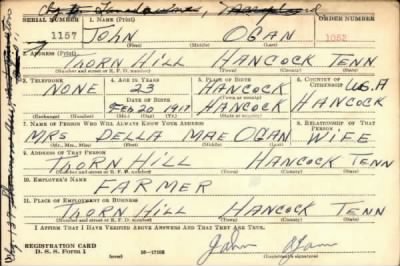 SERIAL NUMBER 1. NAME (Print) ORDER NUMBER
1157 JOHN OGAN 1052
(First) (Middle) (Last)
2. ADDRESS (Print)
THORN HILL HANCOCK TENN
(Number and street or R. F. D. number) (Town) (County) (State)
3. TELEPHONE 4. AGE IN YEARS 5. PLACE OF BIRTH 6. COUNTRY OF CITIZENSHIP
NONE 23 HANCOCK U.S.A
DATE OF BIRTH (Town or county)
FEB 20 1917 HANCOCK
(Exchange) (Number) (Mo.) (Day) (Yr.) (State or country)
7. NAME OF PERSON WHO WILL ALWAYS KNOW YOUR ADDRESS 8. RELATIONSHIP OF THAT PERSON
MRS DELLA MAE OGAN WIFE
(Mr., Mrs., Miss) (First) (Middle) (Last)
9. ADDRESS OF THAT PERSON
THORN HILL HANCOCK TENN
(Number and street or R. F. D. number) (Town) (County) (State)
10. EMPLOYER'S NAME
FARMER
11. PLACE OF EMPLOYMENT OR BUSINESS
THORN HILL HANCOCK TENN
(Number and street or R. F. D. number) (Town) (County) (State)
I AFFIRM THAT I HAVE VERIFIED ABOVE ANSWERS AND THAT THEY ARE TRUE.
REGISTRATION CARD
D. S. S. Form 1 (over) John Ogan
(Registrant's signature)